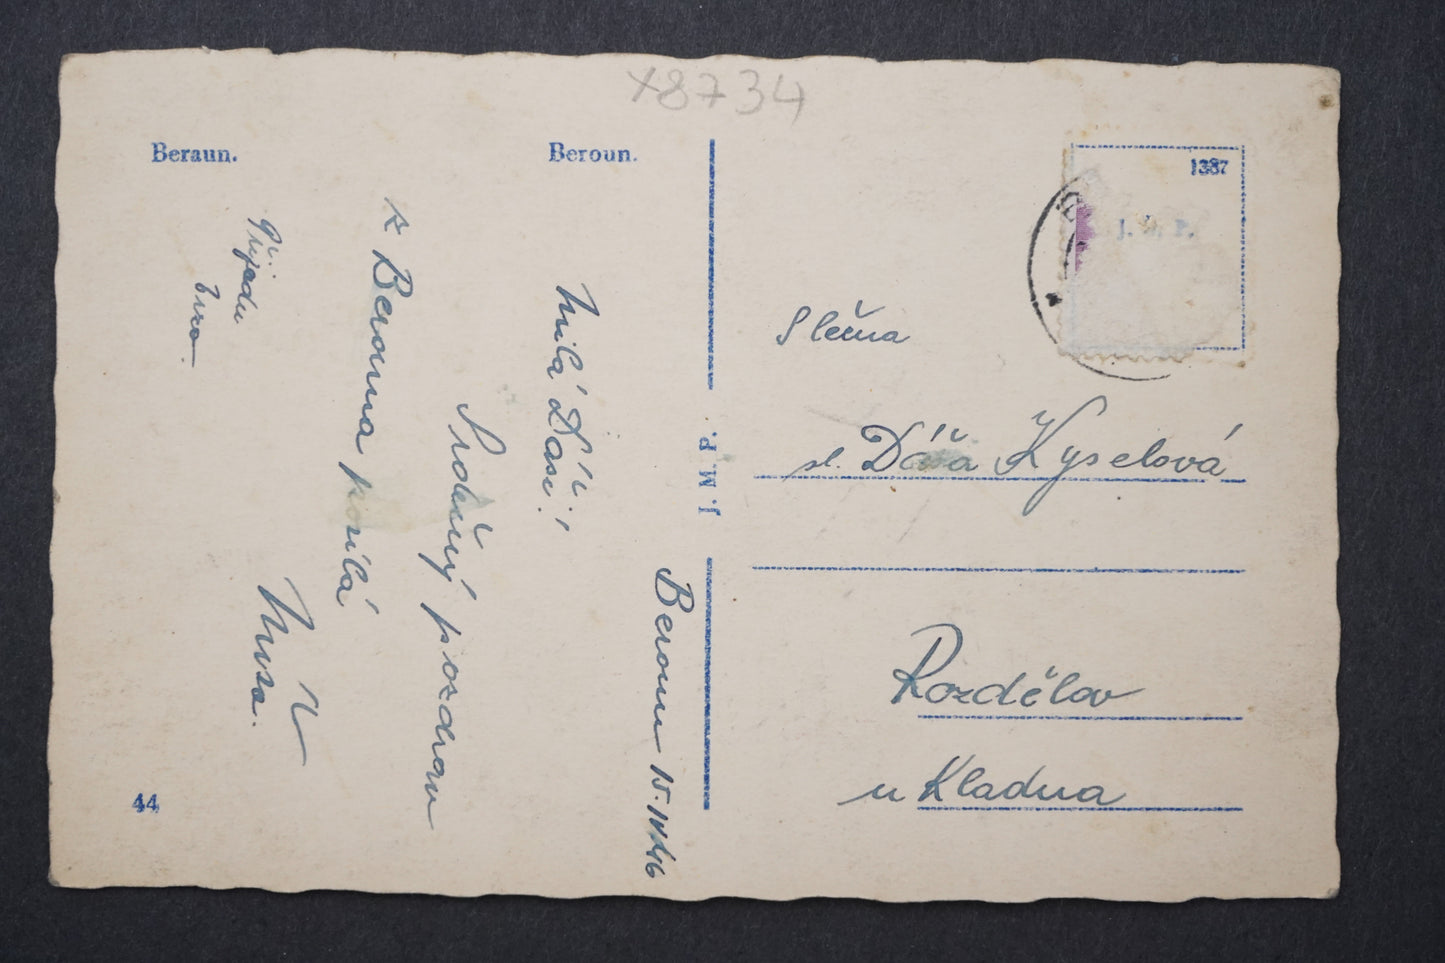 x8734
Beraun.
Beroun.
1387
J. M. P.
Beroun 15 IV 46
Milá Dášo!
Srdečný pozdrav
z Berouna posílá
Přijedu
44
Slečna
sl. Dáša Kyselová
Rozdělov
u Kladna